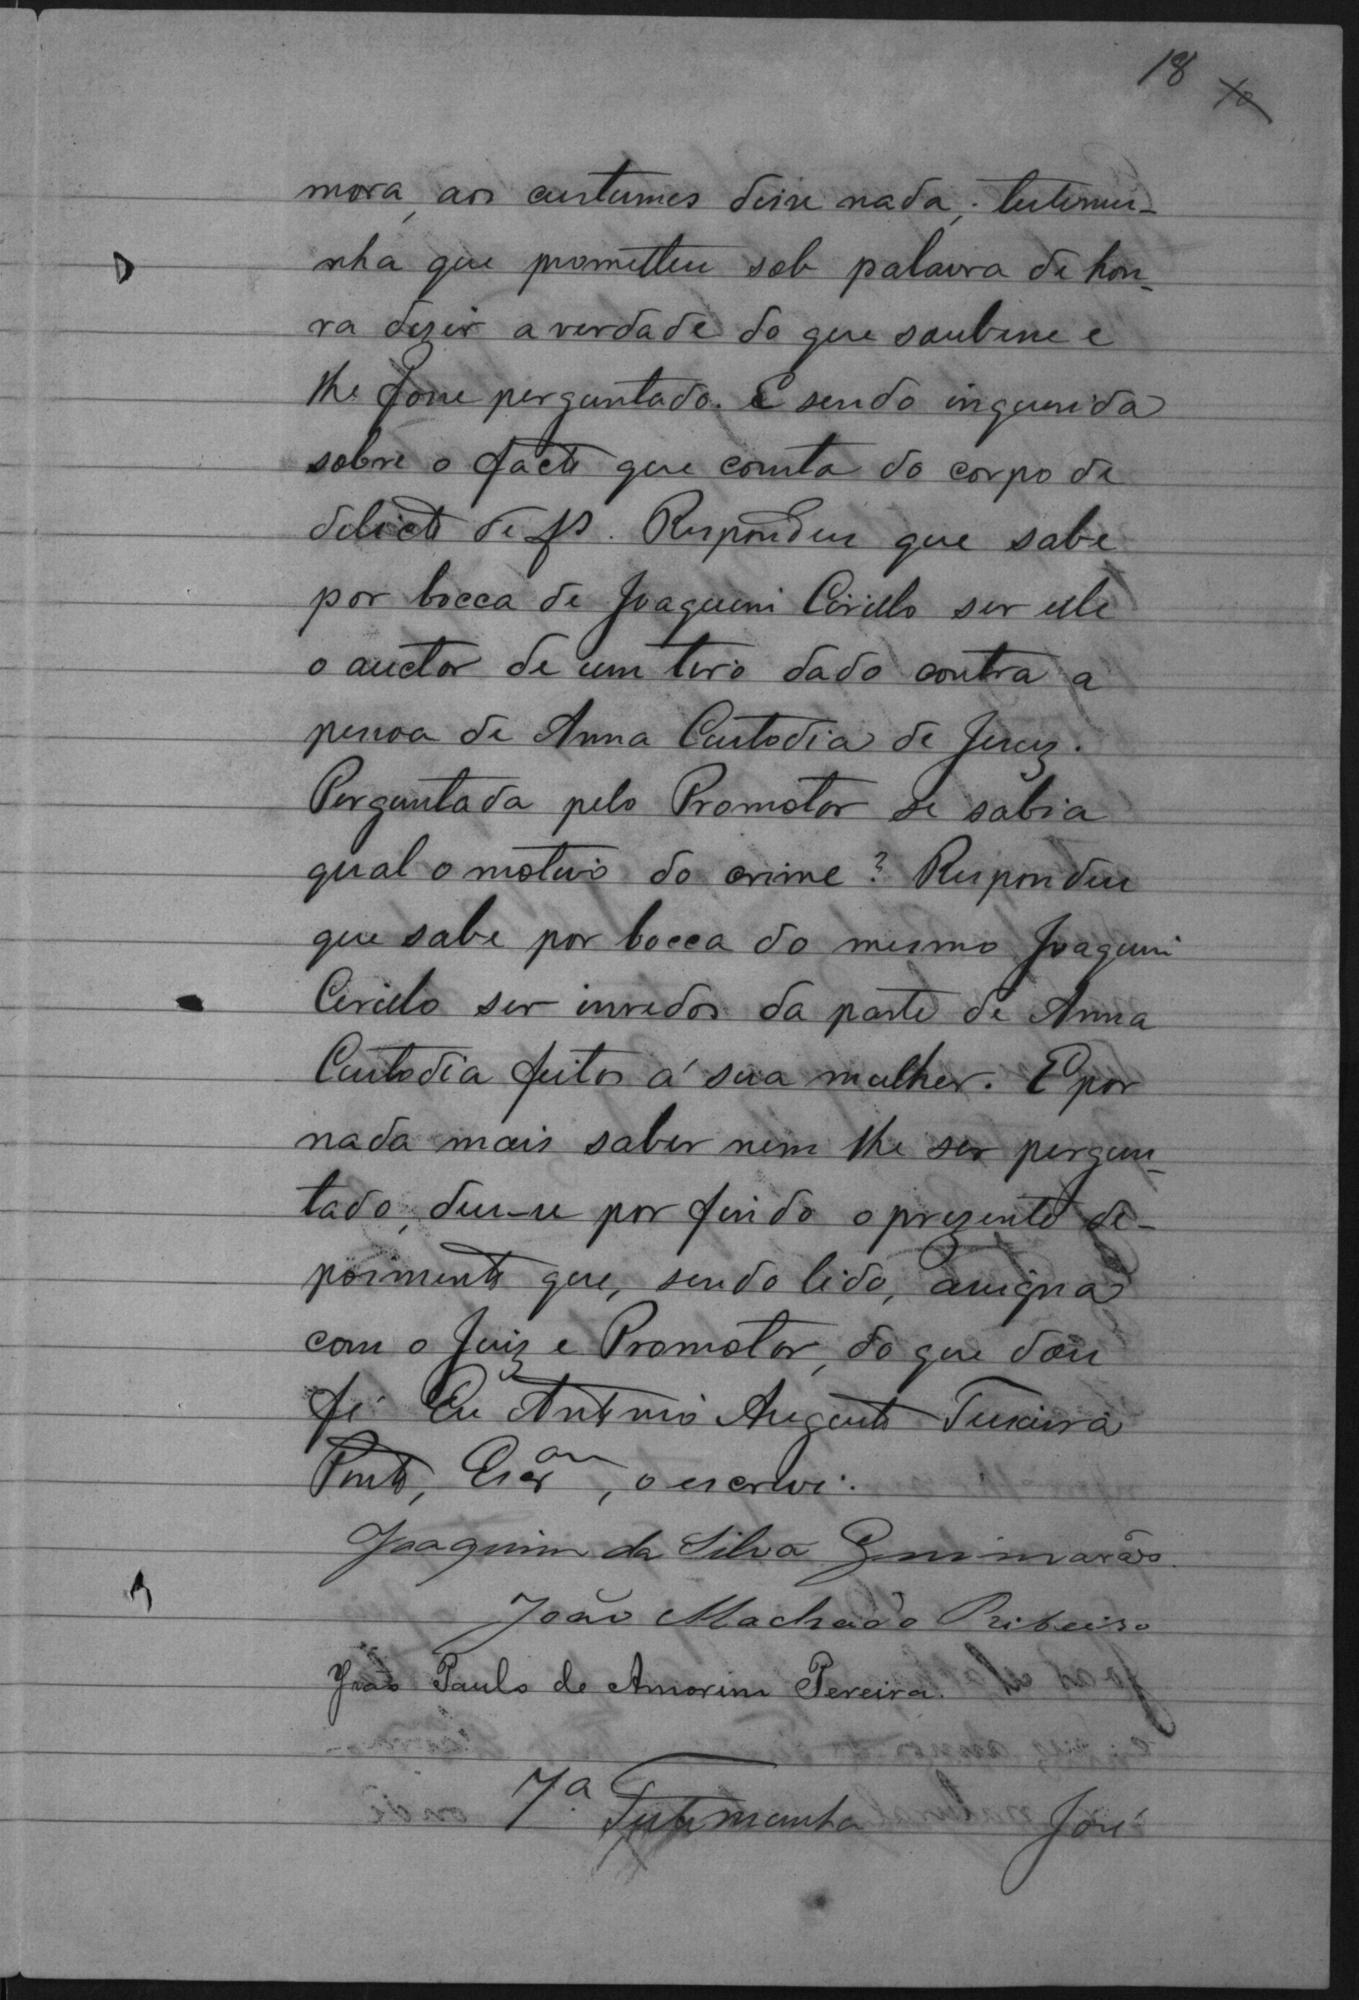 18 10
mora, aos custumes disse nada; testemu-
nha que prometteu sob palavra de hon-
ra dizer a verdade do que soubesse e
lhe fosse perguntado. E sendo inquerida
sobre o facto que consta do corpo de
delicto de fs. Respondeu que sabe
por bocca de Joaquim Cirillo ser elle
o auctor de um tiro dado contra a
pessoa de Anna Custodia de Jesuz.
Perguntada pelo Promotor se sabia
qual o motivo do crime? Respondeu
que sabe por bocca do mesmo Joaquim
Cirillo ser inredos da parte de Anna
Custodia feitos á sua mulher. E por
nada mais saber nem lhe ser pergun-
tado, deu-se por findo o prezente de-
poimento que, sendo lido, assigna
com o Juiz e Promotor, do que dou
fé. Eu Antonio Augusto Teixeira
Pinto, Escram, o escrevi.
Joaquim da Silva Guimarães.
João Machado Ribeiro
João Paulo de Amorim Pereira.
7a Testemunha José